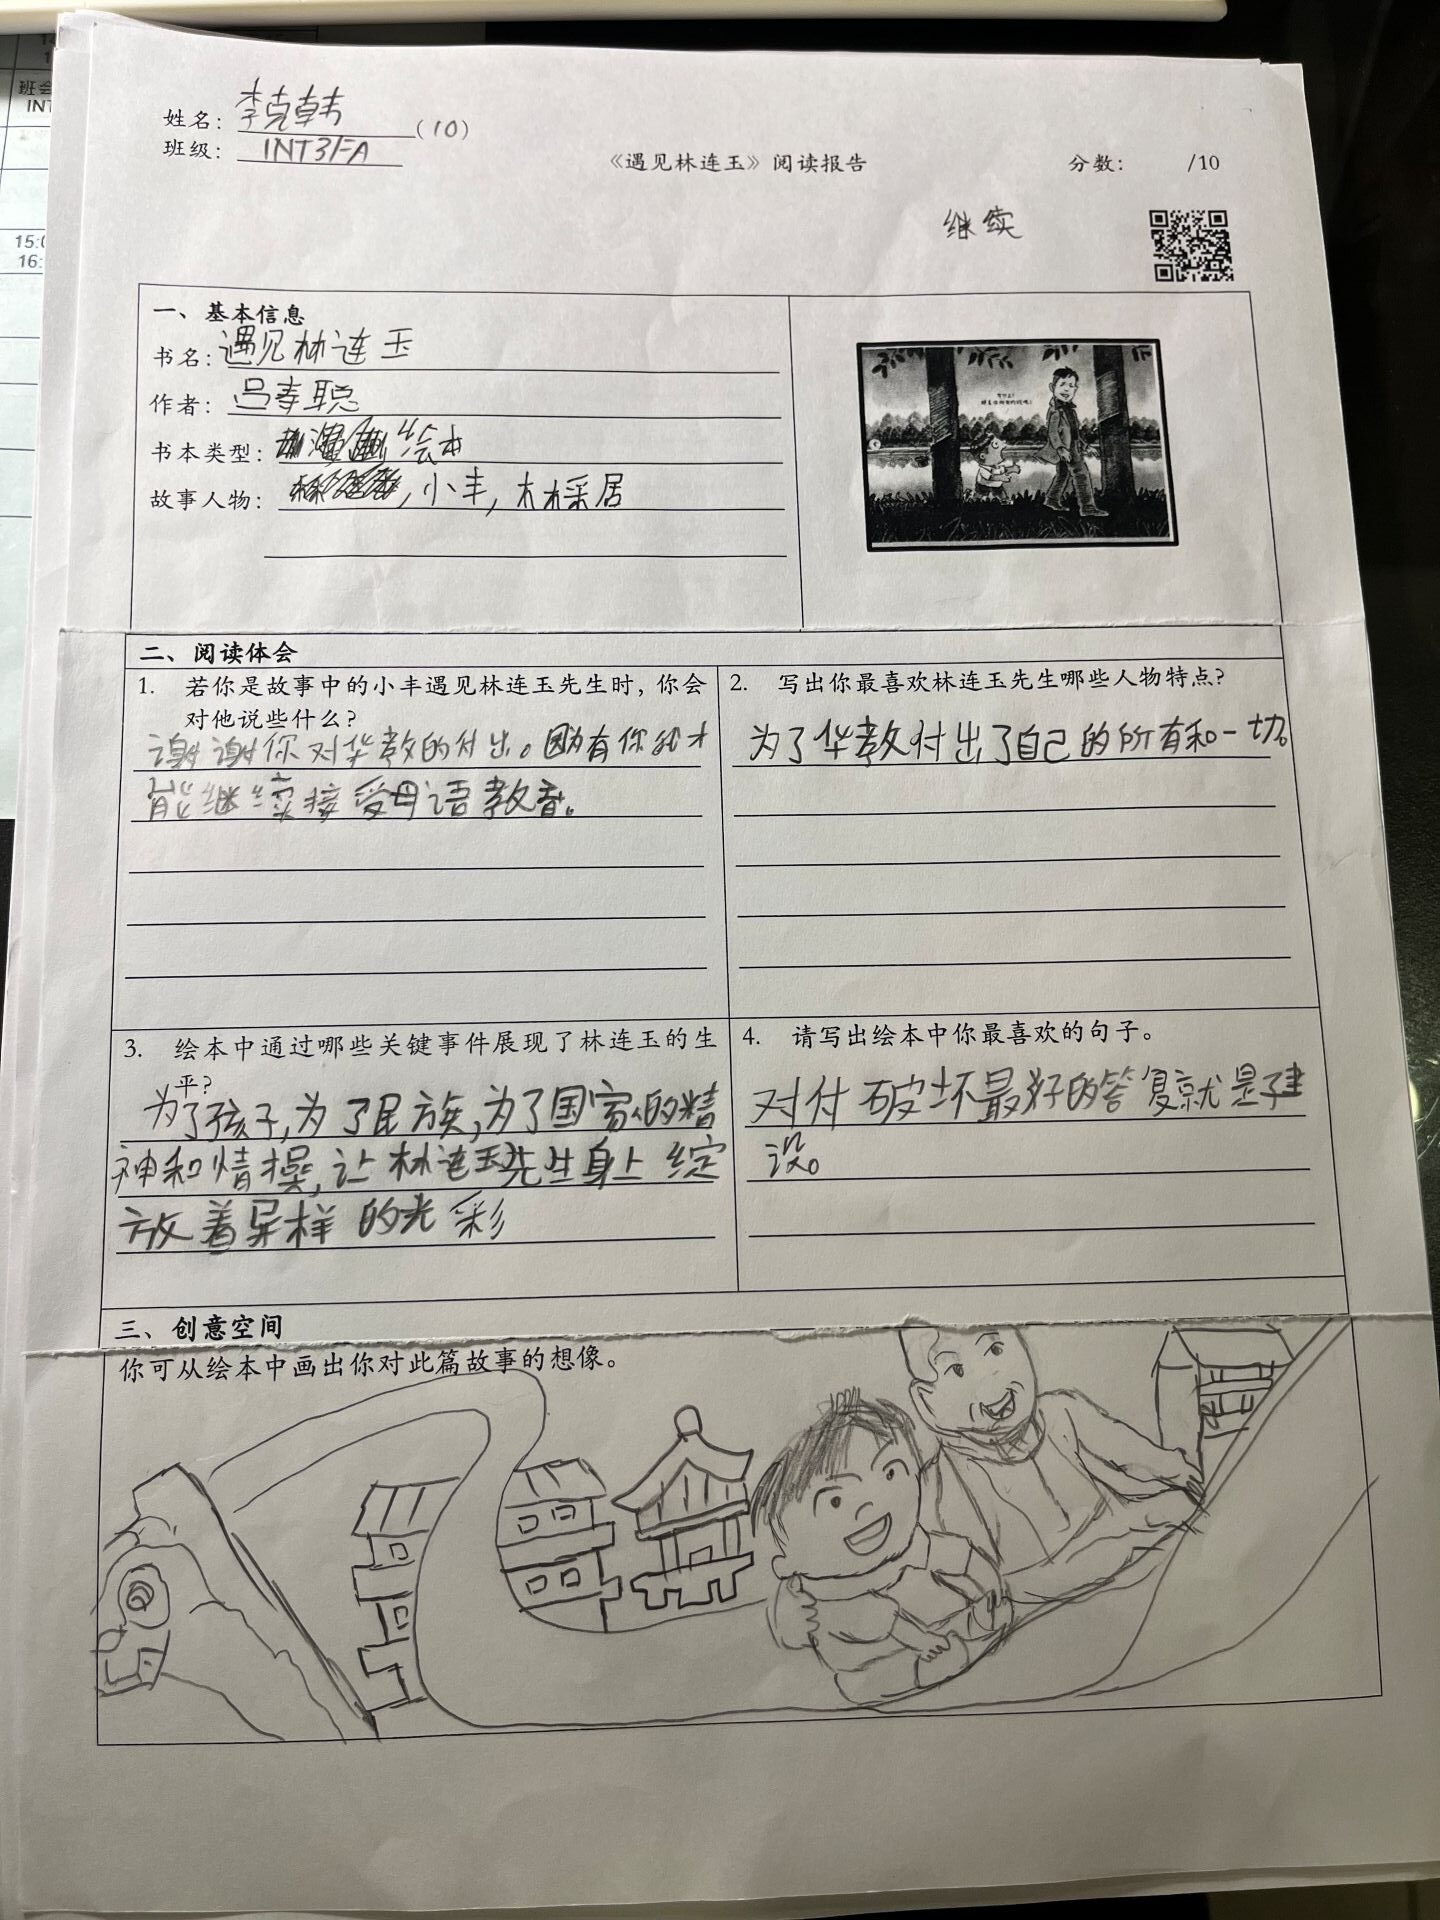 班会
INT
15:0
16:
姓名：李克韩(10)
班级：INT3FA
《遇见林连玉》阅读报告
分数： /10
继续
一、基本信息
书名：遇见林连玉
作者：吕孝聪
书本类型：绘本
故事人物：，小丰，林採居
二、阅读体会
1. 若你是故事中的小丰遇见林连玉先生时，你会
对他说些什么？
谢谢你对华教的付出。因为有你我才
能继续接受母语教育。
2. 写出你最喜欢林连玉先生哪些人物特点？
为了华教付出了自己的所有和一切。
3. 绘本中通过哪些关键事件展现了林连玉的生
平？
为了孩子,为了民族,为了国家的精
神和情操,让林连玉先生身上绽
放着异样的光彩
4. 请写出绘本中你最喜欢的句子。
对付破坏最好的答复就是建
设。
三、创意空间
你可从绘本中画出你对此篇故事的想像。